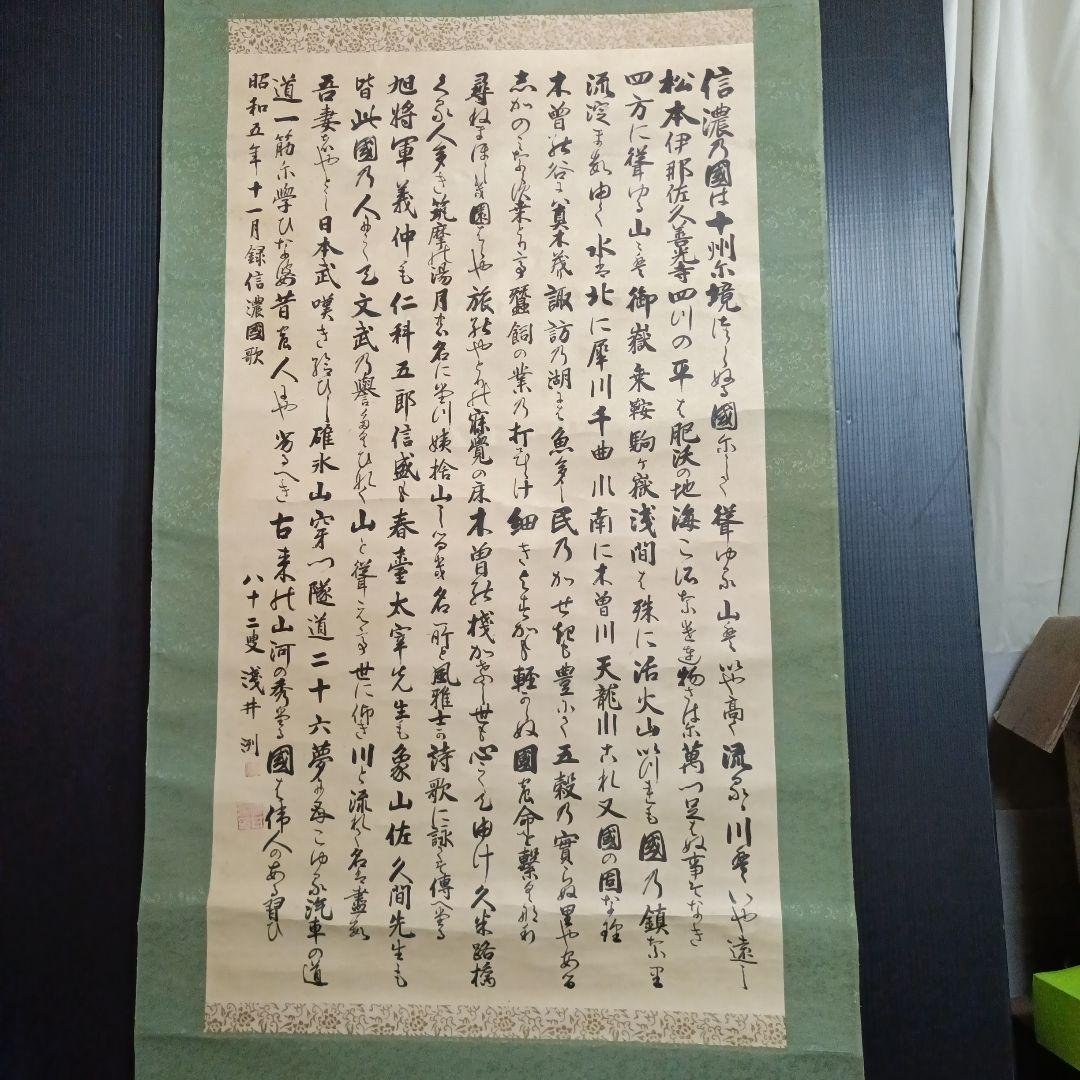 信濃乃國は十州尓境つらぬる國尓して聳ゆる山はいや高く流るゝ川はいや遠し
松本伊那佐久善光寺四つの平は肥沃の地海こそなけれ物さはに萬つ足らぬ事そなき
四方に聳ゆる山々は御嶽乗鞍駒ヶ嶽浅間は殊に活火山いつれも國乃鎮なり
流淀ます由く水は北に犀川千曲川南に木曽川天龍川これ又國の固なり
木曽の谷には真木茂り諏訪乃湖には魚多し民乃かせきも豊にて五穀乃實らぬ里やある
志かのみならす桑とりて蠶飼の業乃打ひらけ細きよすかも軽からぬ國の命を繋くなり
尋ねまほしき園原や旅のやとりの寐覺の床木曽の棧かけし世も心してゆけ久米路橋
くる人多き筑摩の湯月の名に立つ姨捨山しるき名所と風雅士か詩歌に詠てそ傳へたる
旭將軍義仲も仁科五郎信盛も春臺太宰先生も象山佐久間先生も
皆此國乃人にして文武乃譽たくひなく山と聳えて世に仰き川と流れて名は盡す
吾妻はやとし日本武嘆き給ひし碓氷山穿つ隧道二十六夢にもこゆる汽車の道
道一筋尓學ひなは昔の人にや劣るへき古来の山河の秀てたる國は偉人のある習ひ
昭和五年十一月録信濃國歌
八十二叟 淺井洌